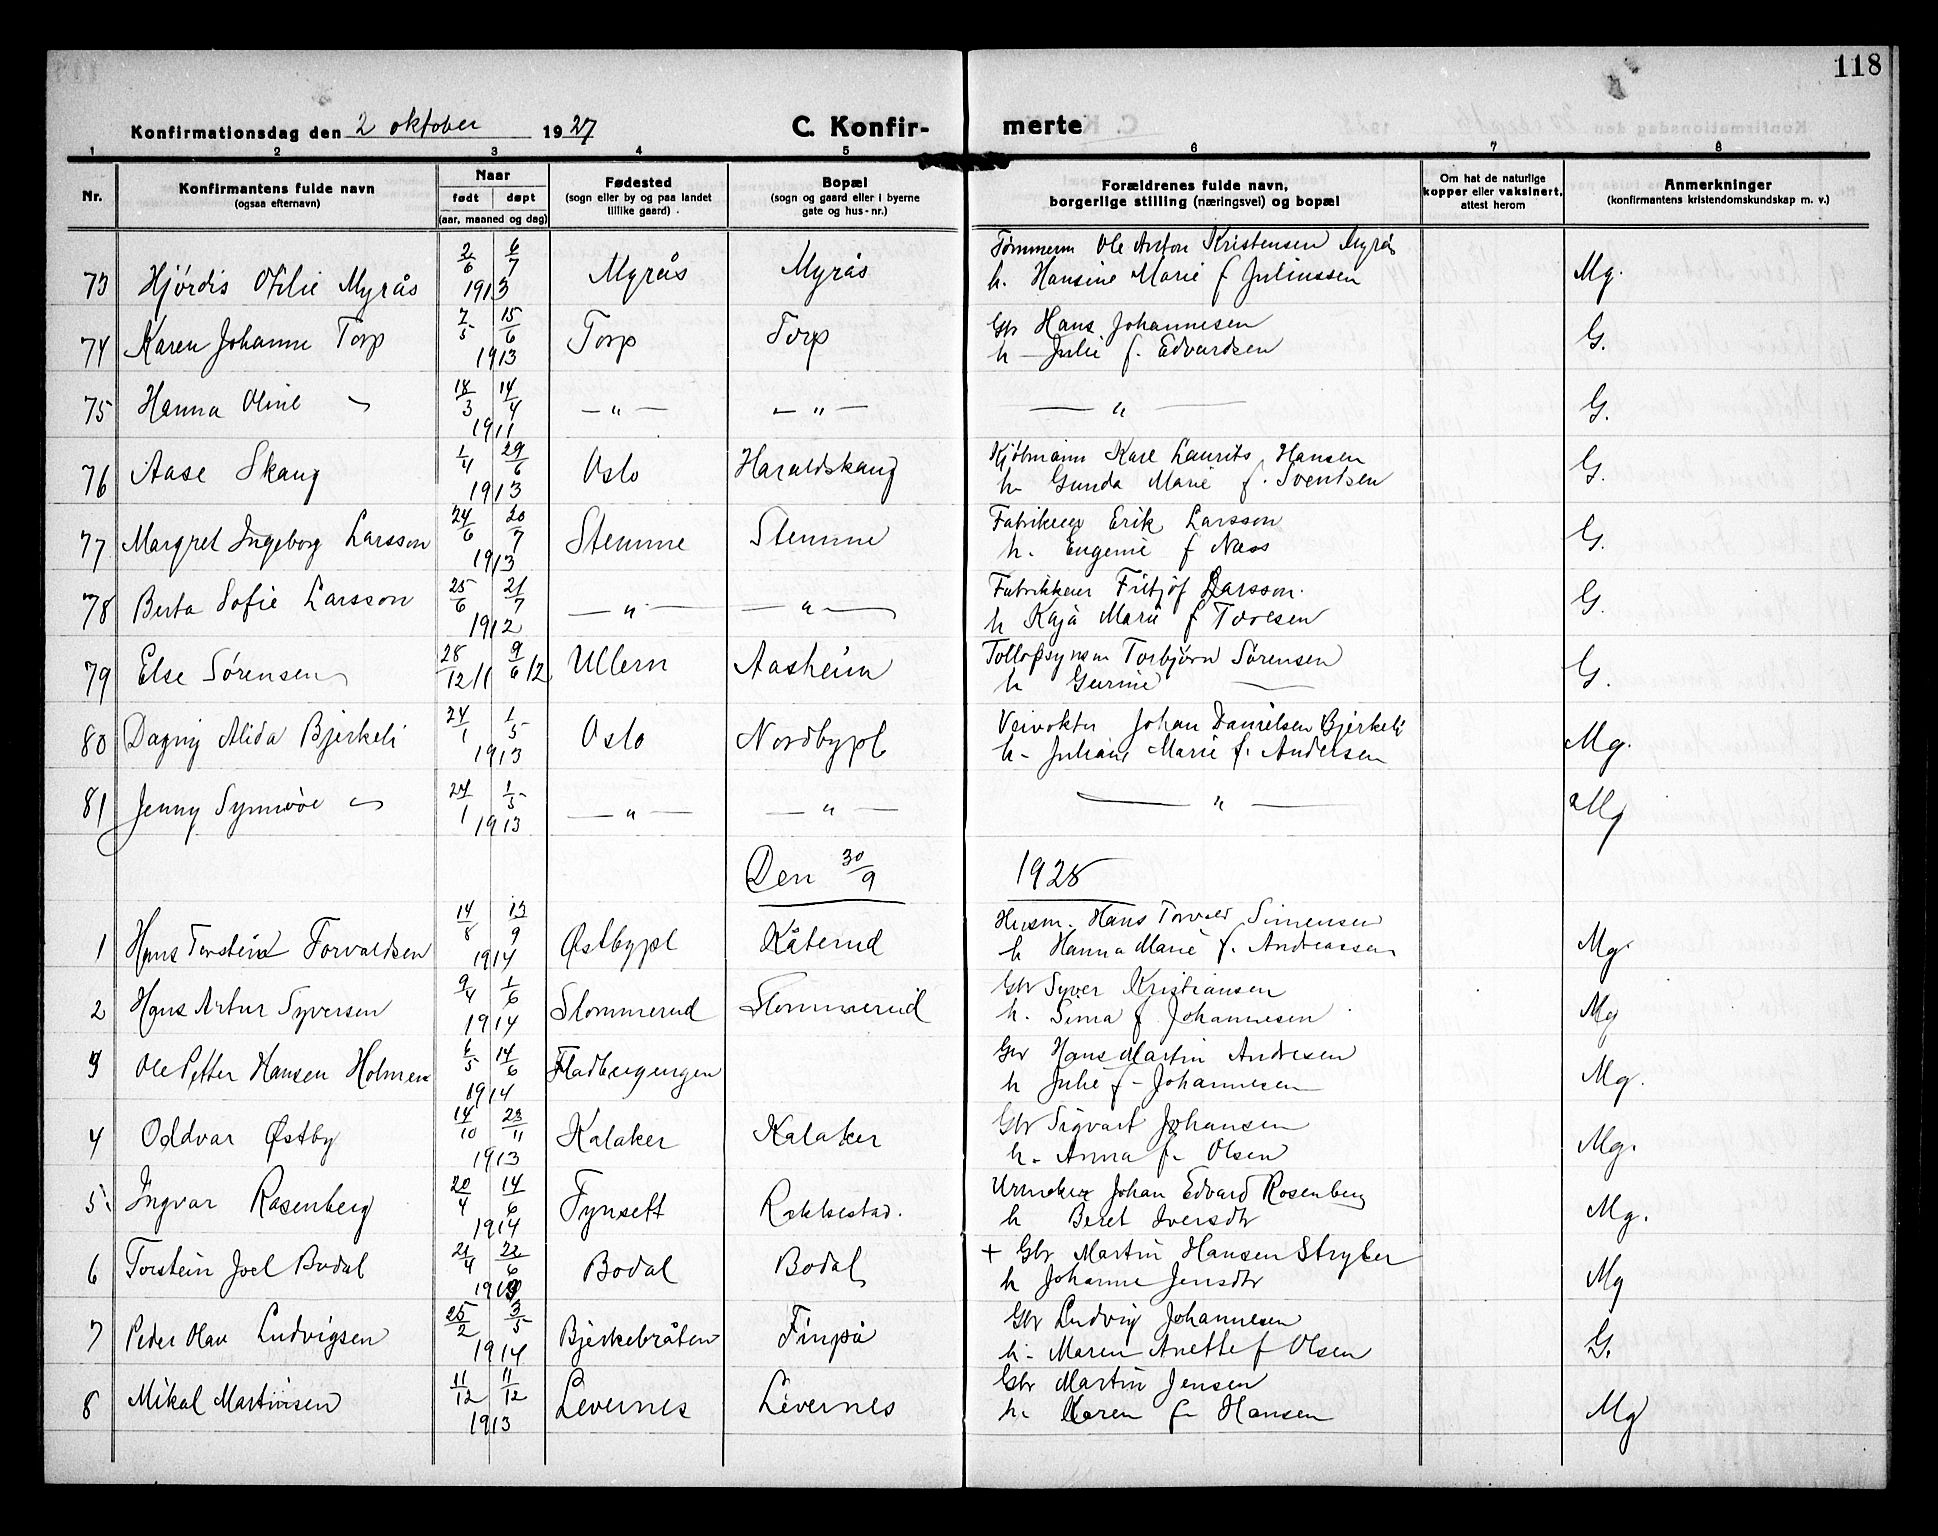 118
Konfirmationsdag den 2 oktober 1927 C. Konfir- merte
1 2 3 4 5 6 7 8
Nr. Konfirmantens fulde navn (ogsaa efternavn) Naar født døpt (aar, maaned og dag) Fødested (sogn eller by og paa landet lillike gaard) Bopæl (sogn og gaard eller i byerne gate og hus-nr.) Forældrenes fulde navn, borgerlige stilling (næringsvei) og bopæl Om hat de naturlige kopper eller vaksinert, attest herom Anmerkninger (konfirmantens kristendomskundskap m. v.)
73 Hjørdis Otilie Myrås 2/6 6/7 1913 Myrås Myrås Tømmerm Ole Anton Kristensen Myrås Mg.
h. Hansine Marie f Juliussen
74 Karen Johanne Torp 7/5 15/6 1913 Torp Torp Gbr Hans Johannesen G.
h - Julie f. Edvardsen
75 Hanna Oline " 18/3 14/4 1911 — " — — " — — " — G.
76 Aase Skaug 1/4 29/6 1913 Oslo Haraldskaug Kjøbmann Karl Laurits Hansen G.
h - Gunda Marie f. Sventsen
77 Margret Ingeborg Larsson 24/6 20/7 1913 Stemme Stemme Fabrikeier Erik Larsson G.
h. Eugenie f Næss
78 Berta Sofie Larsson 25/6 21/7 1912 — " — — " — Fabrikkeier Fritjof Larsson. G.
h Kaja Marie f Toresen
79 Else Sørensen 28/12 11 9/6 12 Ullern Aasheim Tollopsynsm Torbjørn Sørensen G.
h Gurine —
80 Dagny Alida Bjerkeli 24/1 1/5 1913 Oslo Nordbypl Veivokter Johan Danielsen Bjerkeli Mg.
h - Juliane Marie f. Andersen
81 Jenny Synnøve " 24/1 1/5 1913 — " — — " — — " — Mg
Den 30/9 1928
1 Hans Torstein Torvaldsen 14/8 13/9 1914 Østbypl Kåterud Husm. Hans Torvald Simensen Mg.
h Hanna Marie f. Andreassen
2 Hans Artur Syversen 9/4 1/6 1914 Slommerud Slommerud Gbr Syver Kristiansen Mg
h. Sina f Johannesen
3 Ole Petter Hansen Holmen 6/5 14/6 1914 Fladbergengen Gbr Hans Martin Andresen Mg.
h Julie f - Johannesen
4 Oddvar Østby 14/10 23/11 1913 Kalaker Kalaker Gbr Sigvart Johansen Mg.
h - Anna f - Olsen
5. Ingvar Rosenberg 20/4 14/6 1914 Tynsett Rakkestad. Urmaker Johan Edvard Rosenberg Mg.
h Beret Iversdtr
6 Torstein Joel Bodal 21/4 22/6 1913 Bodal Bodal + Gbr Martin Hansen Stryker Mg
h Johanne Jensdtr
7 Peder Olav Ludvigsen 25/2 3/5 1914 Bjerkebråten Finpå Gbr Ludvig Johannesen G.
h - Maren Anette f Olsen
8 Mikal Martinsen 11/12 11/12 1913 Levernes Levernes Gbr Martin Jensen Mg
h. Karen f - Hansen